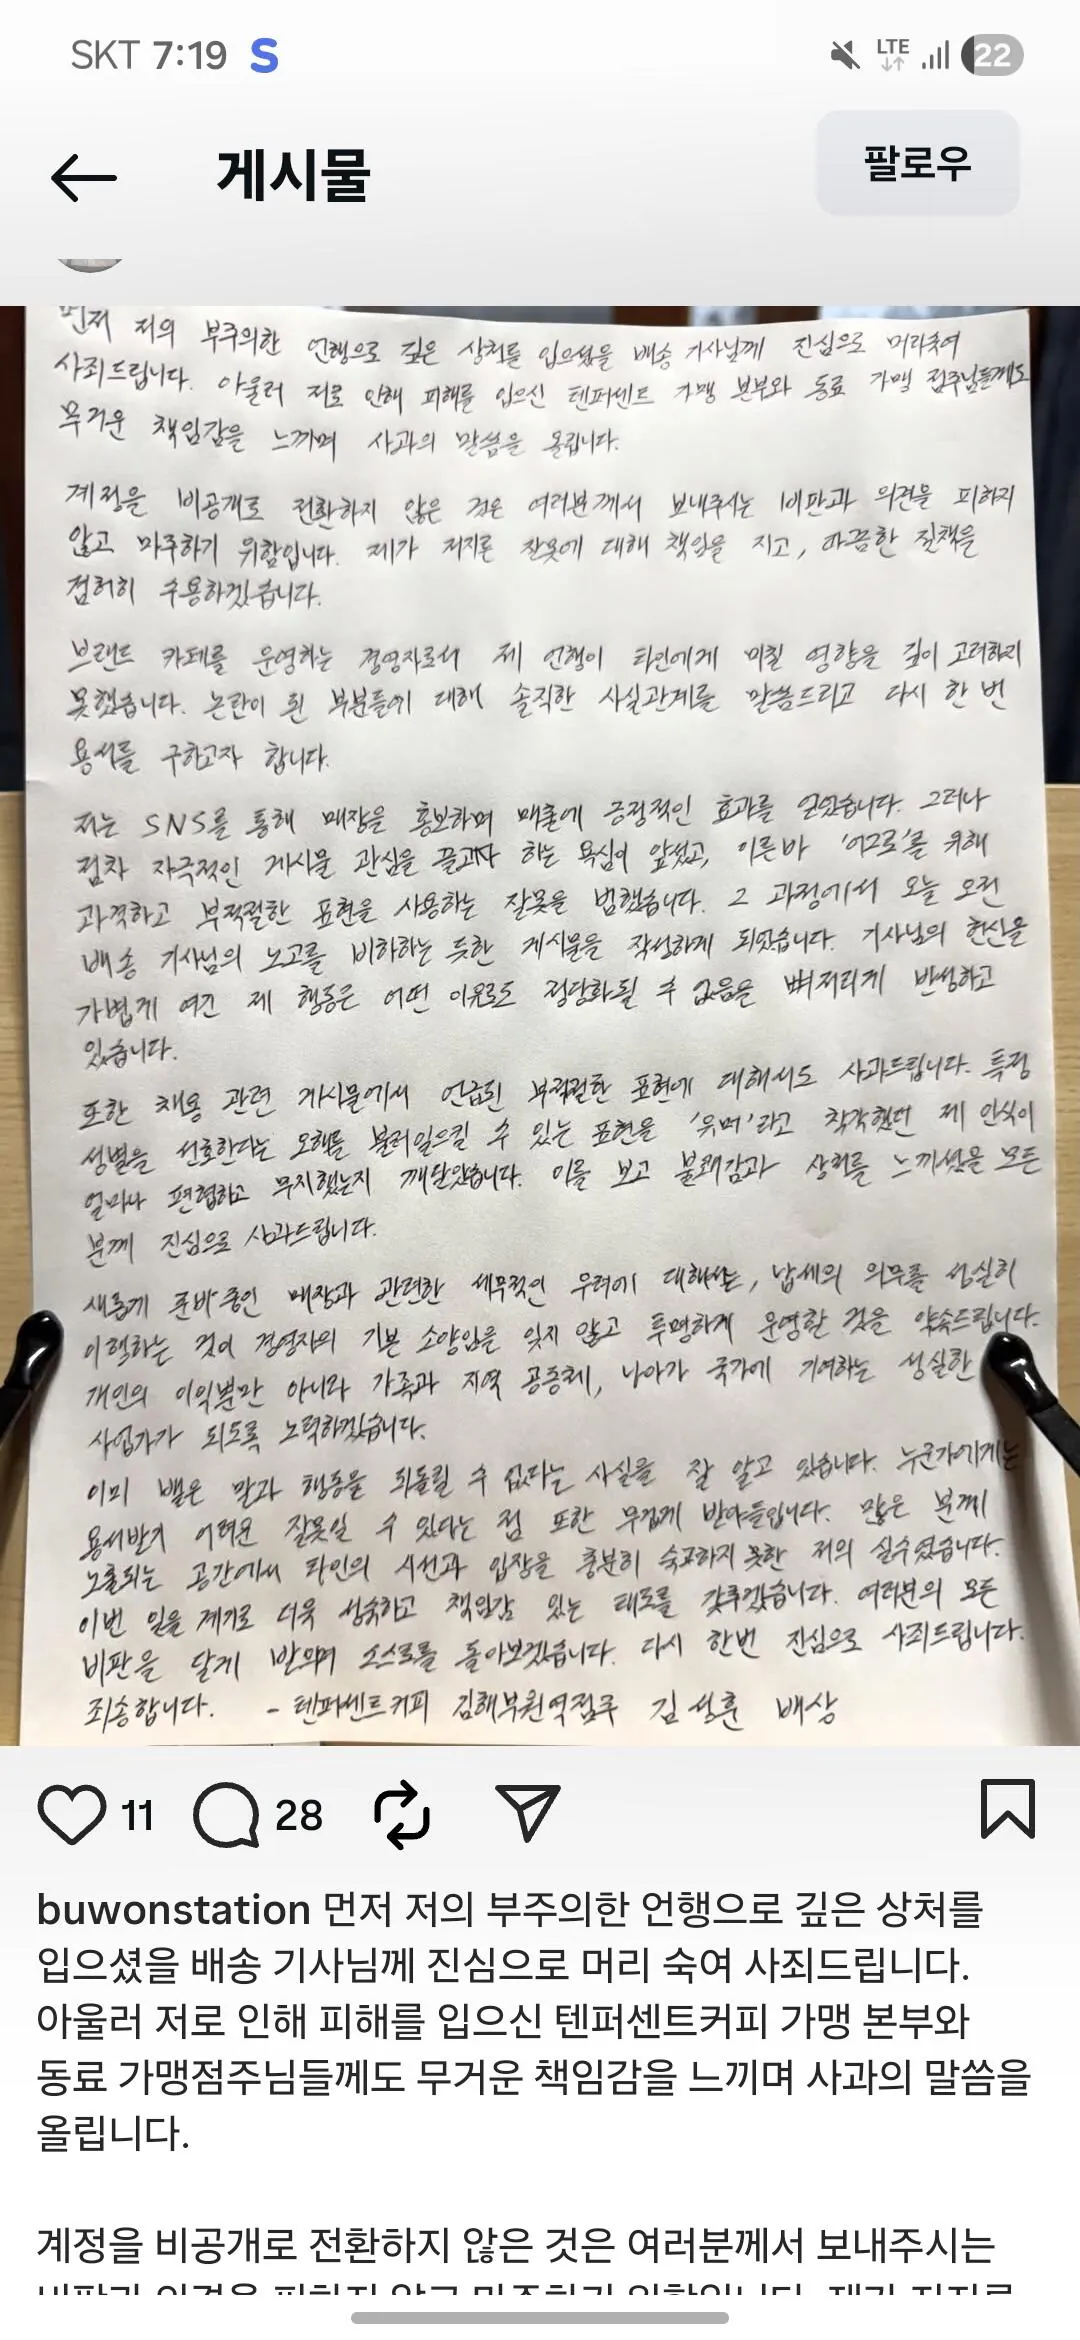 SKT 7:19 S LTE 22
게시물
팔로우
먼저 저의 부주의한 언행으로 깊은 상처를 입으셨을 배송 기사님께 진심으로 머리숙여
사죄드립니다. 아울러 저로 인해 피해를 입으신 텐퍼센트 가맹 본부와 동료 가맹 점주님들께도
무거운 책임감을 느끼며 사과의 말씀을 올립니다.
계정을 비공개로 전환하지 않은 것은 여러분께서 보내주시는 비판과 의견을 피하지
않고 마주하기 위함입니다. 제가 저지른 잘못에 대해 책임을 지고, 따끔한 질책을
겸허히 수용하겠습니다.
브랜드 카페를 운영하는 경영자로서 제 언행이 타인에게 미칠 영향을 깊이 고려하지
못했습니다. 논란이 된 부분들에 대해 솔직한 사실관계를 말씀드리고 다시 한 번
용서를 구하고자 합니다.
저는 SNS를 통해 매장을 홍보하며 매출에 긍정적인 효과를 얻었습니다. 그러나
점차 자극적인 게시물 관심을 끌고자 하는 욕심이 앞섰고, 이른바 '어그로'를 위해
과격하고 부적절한 표현을 사용하는 잘못을 범했습니다. 그 과정에서 오늘 오전
배송 기사님의 노고를 비하하는 듯한 게시물을 작성하게 되었습니다. 기사님의 헌신을
가볍게 여긴 제 행동은 어떤 이유로도 정당화될 수 없음을 뼈저리게 반성하고
있습니다.
또한 채용 관련 게시물에서 언급된 부적절한 표현에 대해서도 사과드립니다. 특정
성별을 선호한다는 오해를 불러일으킬 수 있는 표현을 '유머'라고 착각했던 제 인식이
얼마나 편협하고 무지했는지 깨달았습니다. 이를 보고 불쾌감과 상처를 느끼셨을 모든
분께 진심으로 사과드립니다.
새롭게 준비 중인 매장과 관련한 세무적인 우려에 대해서는, 납세의 의무를 성실히
이행하는 것이 경영자의 기본 소양임을 잊지 않고 투명하게 운영할 것을 약속드립니다.
개인의 이익뿐만 아니라 가족과 지역 공동체, 나아가 국가에 기여하는 성실한
사업가가 되도록 노력하겠습니다.
이미 뱉은 말과 행동을 되돌릴 수 없다는 사실을 잘 알고 있습니다. 누군가에게는
용서받기 어려운 잘못일 수 있다는 점 또한 무겁게 받아들입니다. 많은 분께
노출되는 공간에서 타인의 시선과 입장을 충분히 숙고하지 못한 저의 실수였습니다.
이번 일을 계기로 더욱 성숙하고 책임감 있는 태도를 갖추겠습니다. 여러분의 모든
비판을 달게 받으며 스스로를 돌아보겠습니다. 다시 한번 진심으로 사죄드립니다.
죄송합니다. - 텐퍼센트커피 김해부원역점주 김성훈 배상
11 28
buwonstation 먼저 저의 부주의한 언행으로 깊은 상처를
입으셨을 배송 기사님께 진심으로 머리 숙여 사죄드립니다.
아울러 저로 인해 피해를 입으신 텐퍼센트커피 가맹 본부와
동료 가맹점주님들께도 무거운 책임감을 느끼며 사과의 말씀을
올립니다.
계정을 비공개로 전환하지 않은 것은 여러분께서 보내주시는
비판과 의견을 피하지 않고 마주하기 위함입니다. 제가 저지른